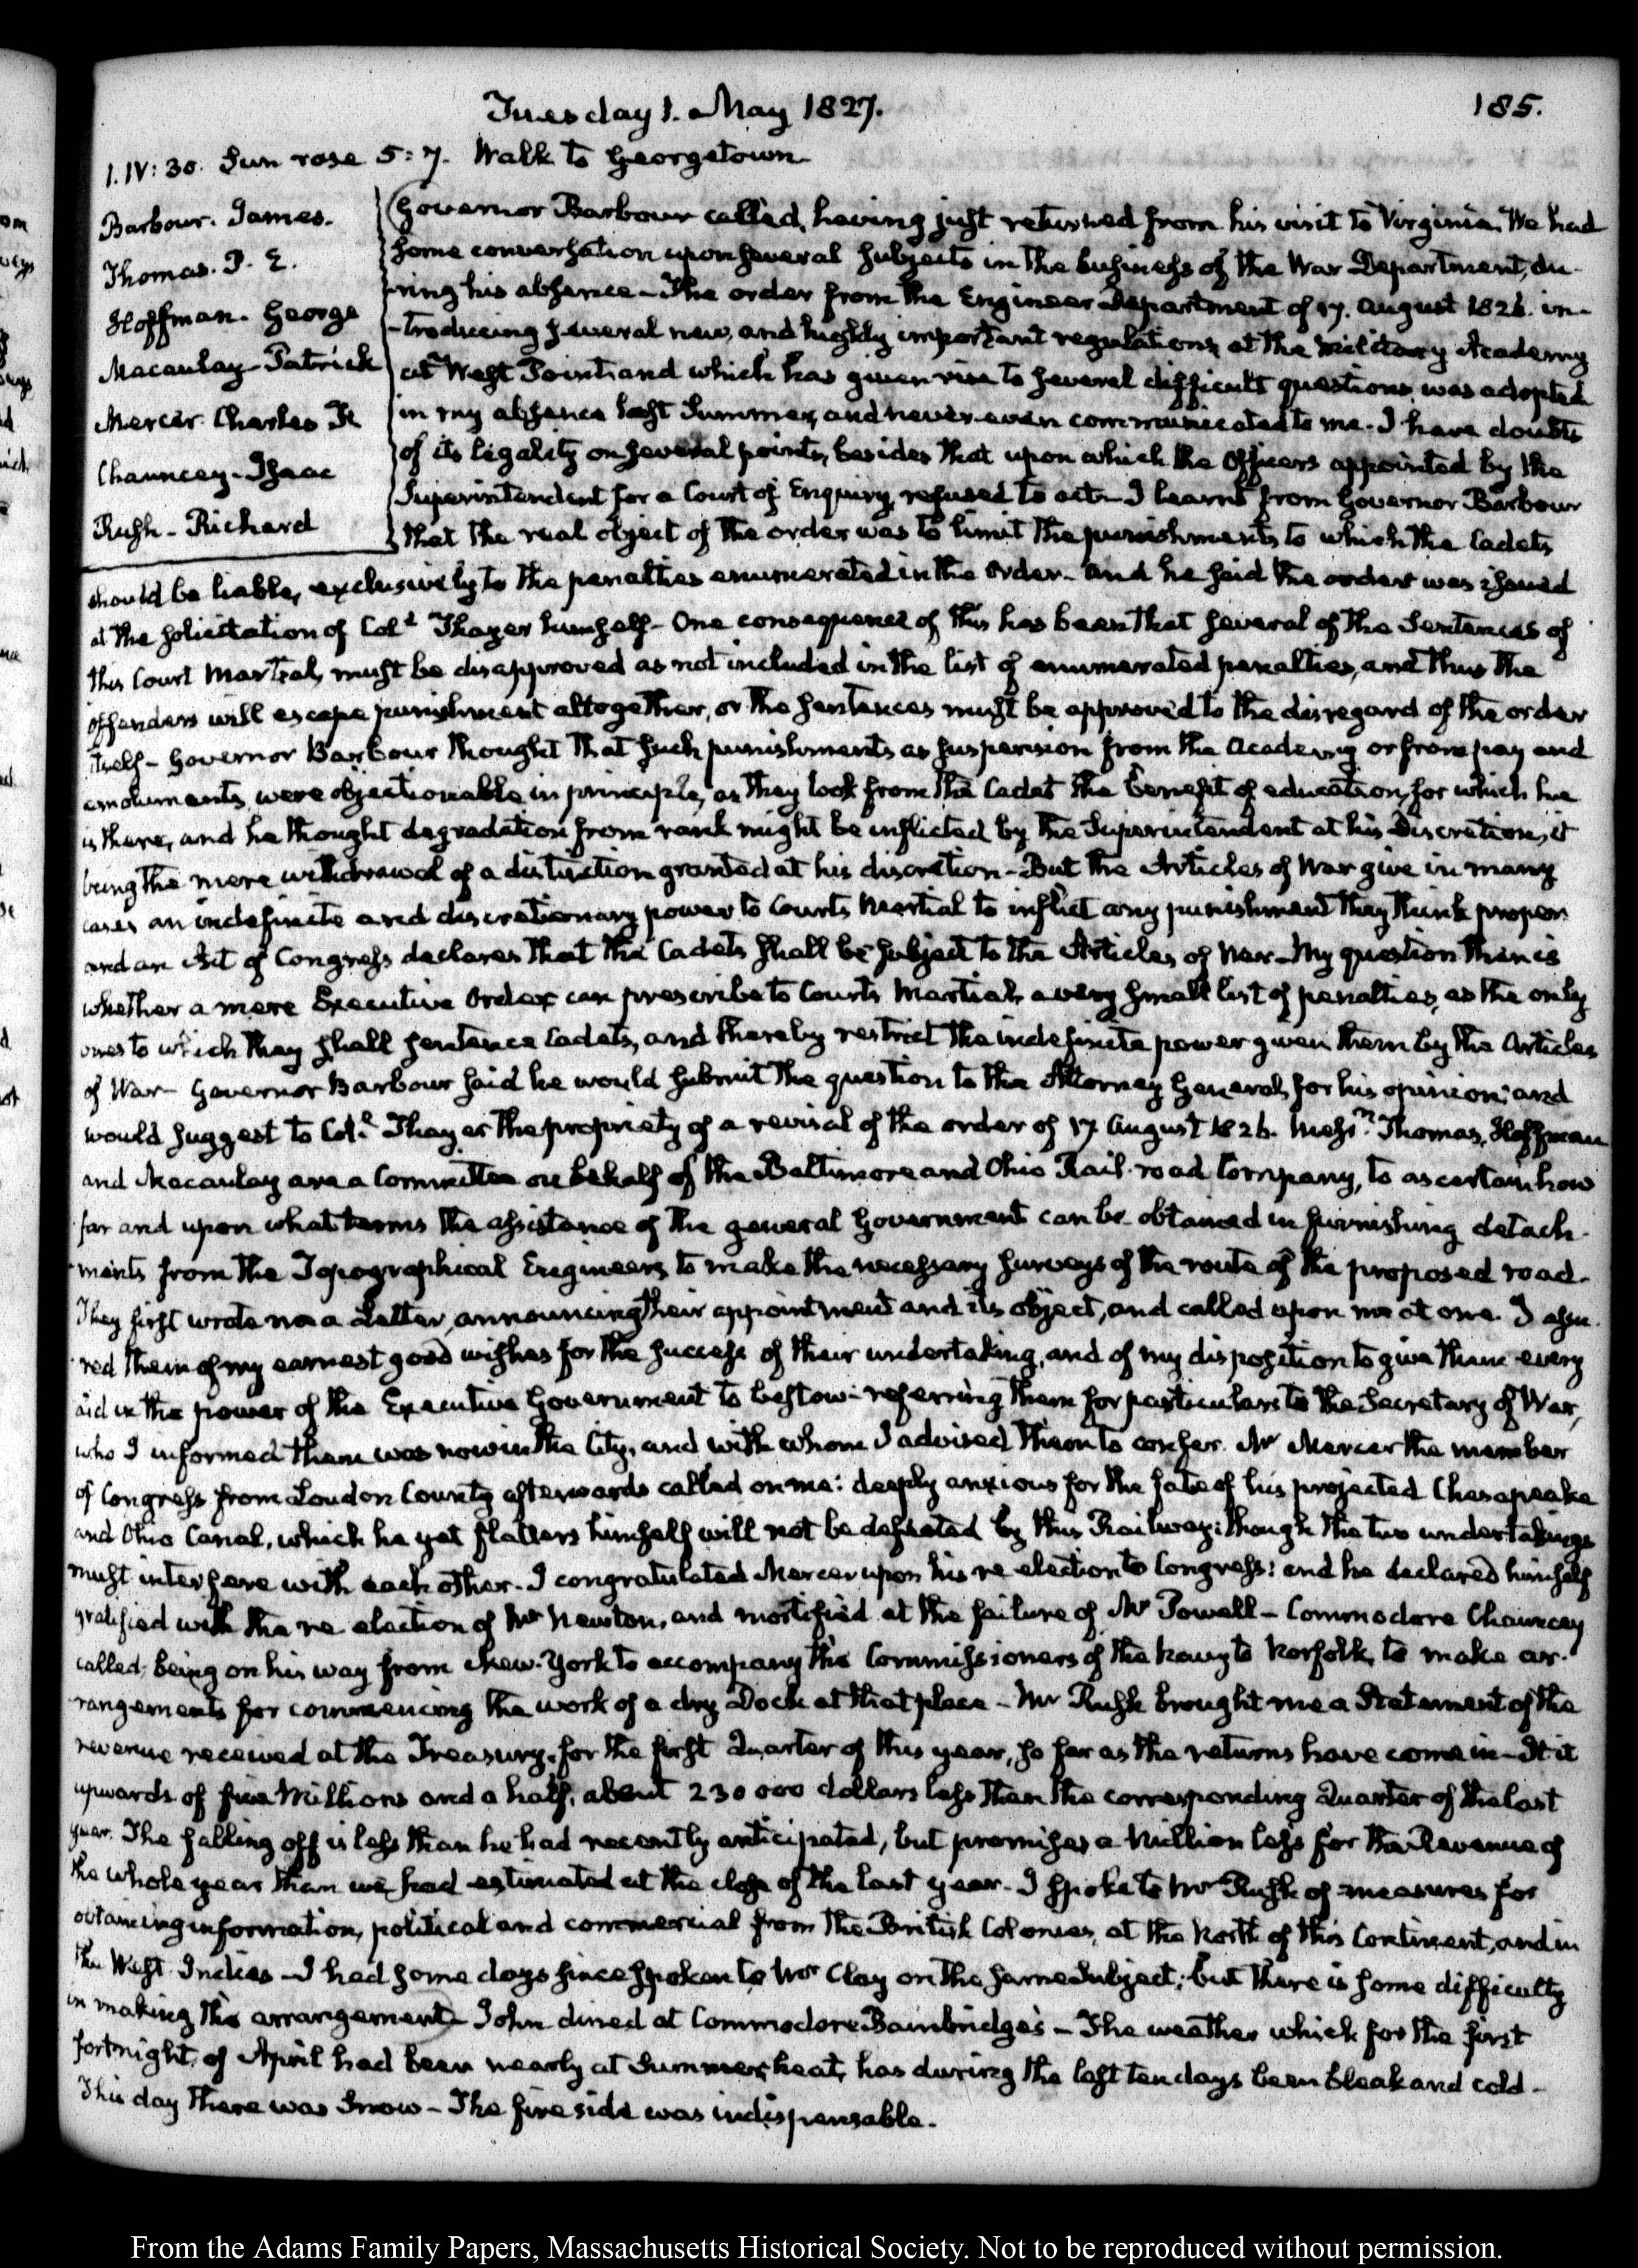 Tuesday 1. May 1827.
185.
1. IV: 30. Sun rose 5:7. Walk to Georgetown
Barbour. James.
Thomas. P. E.
Hoffman. George
Macaulay - Patrick
Mercer. Charles F.
Chauncey - Isaac
Rush - Richard
Governor Barbour called, having just returned from his visit to Virginia. We had
some conversation upon several subjects in the business of the War Department, du-
ring his absence - The order from the Engineer Department of 17. August 1826. in-
-troducing several new, and highly important regulations at the Military Academy
at West Point, and which has given rise to several difficult questions, was adopted
in my absence last Summer, and never even communicated to me. I have doubts
of its legality on several points, besides that upon which the Officers appointed by the
Superintendent for a Court of Enquiry, refused to act - I learnt from Governor Barbour
that the real object of the order was to limit the punishments to which the Cadets
should be liable, exclusively to the penalties enumerated in the order - and he said the order was issued
at the solicitation of Coll. Thayer himself - One consequence of this has been that several of the Sentences of
this Court Martial, must be disapproved as not included in the list of enumerated penalties, and thus the
offenders will escape punishment altogether, or the sentences must be approved to the disregard of the order
itself - Governor Barbour thought that such punishments as suspension from the Academy or from pay and
emoluments, were objectionable in principle, as they took from the Cadet the benefit of education, for which he
is there, and he thought degradation from rank might be inflicted by the Superintendent at his discretion, it
being the mere withdrawal of a distinction granted at his discretion - But the Articles of War give in many
cases an indefinite and discretionary power to Courts Martial to inflict any punishment they think proper
and an Act of Congress declares that the Cadets shall be subject to the Articles of War - My question then is
whether a mere Executive Order can prescribe to Courts Martial, a very small list of penalties, as the only
ones to which they shall sentence Cadets, and thereby restrict the indefinite power given them by the Articles
of War - Governor Barbour said he would submit the question to the Attorney General, for his opinion; and
would suggest to Coll. Thayer the propriety of a revisal of the order of 17 August 1826. Messrs. Thomas, Hoffman
and Macaulay are a Committee on behalf of the Baltimore and Ohio Rail-road Company, to ascertain how
far and upon what terms the assistance of the general Government can be obtained in furnishing detach-
-ments from the Topographical Engineers to make the necessary surveys of the route of the proposed road.
They first wrote me a Letter, announcing their appointment and its object, and called upon me at one. I assu-
-red them of my earnest good wishes for the success of their undertaking, and of my disposition to give them every
aid in the power of the Executive Government to bestow - referring them for particulars to the Secretary of War,
who I informed them was now in the City, and with whom I advised them to confer. Mr Mercer the member
of Congress from Loudon County afterwards called on me: deeply anxious for the fate of his projected Chesapeake
and Ohio Canal, which he yet flatters himself will not be defeated by this Railway: though the two undertakings
must interfere with each other. I congratulated Mercer upon his re-election to Congress: and he declared himself
gratified with the re election of Mr Newton, and mortified at the failure of Mr Powell - Commodore Chauncey
called, being on his way from New-York to accompany the Commissioners of the Navy to Norfolk, to make ar-
-rangements for commencing the work of a dry Dock at that place - Mr Rush brought me a Statement of the
revenue received at the Treasury, for the first Quarter of this year, so far as the returns have come in - It is
upwards of five Millions and a half, about 230 000 dollars less than the corresponding Quarter of the last
year. The falling off is less than he had recently anticipated, but promises a Million less for the Revenue of
the whole year than we had estimated at the close of the last year. I spoke to Mr Rush of measures for
obtaining information, political and commercial from the British Colonies, at the North of this Continent, and in
the West-Indies - I had some days since spoken to Mr Clay on the same subject; but there is some difficulty
in making the arrangement - John dined at Commodore Bainbridge's - The weather which for the first
fortnight of April had been nearly at Summer heat, has during the last ten days been bleak and cold -
This day there was Snow - The fire side was indispensable.
From the Adams Family Papers, Massachusetts Historical Society. Not to be reproduced without permission.